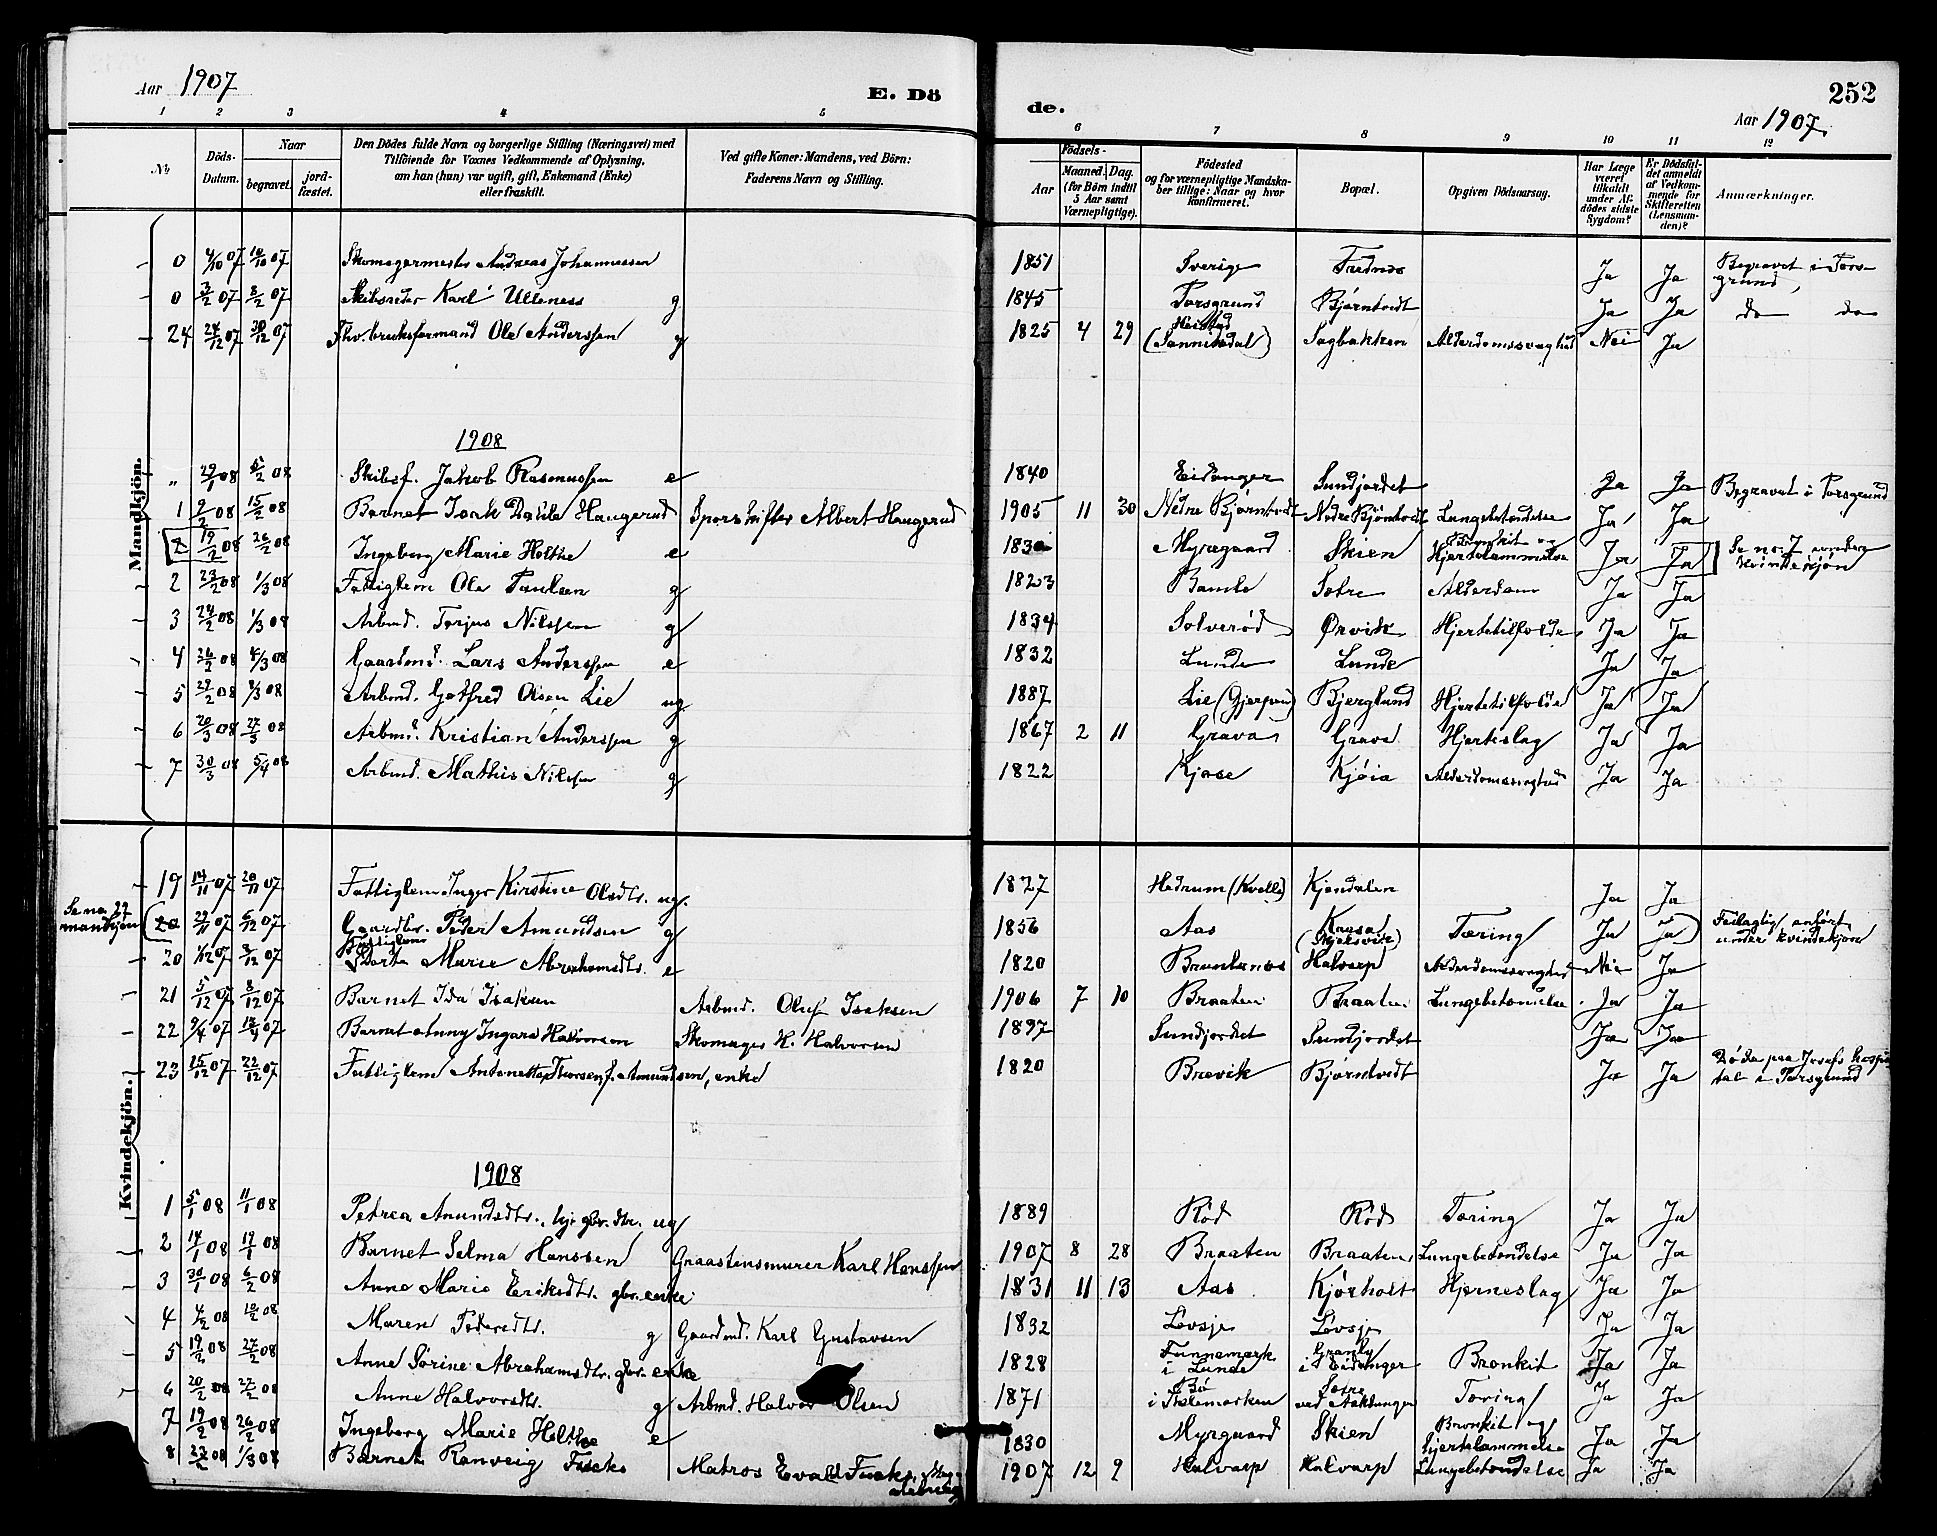 Aar 1907 E. Dö de. 252
Aar 1907.
1 2 3 4 5 6 7 8 9 10 11 12
No Döds-Datum. Naar begravet. jord-fæstet. Den Dödes fulde Navn og borgerlige Stilling (Næringsvei) med Tilföiende for Voxnes Vedkommende af Oplysning, om han (hun) var ugift, gift, Enkemand (Enke) eller fraskilt. Ved gifte Koner: Mandens, ved Börn: Faderens Navn og Stilling. Födsels- Aar Maaned. Dag. (for Börn indtil 5 Aar samt Værnepligtige). Födested og for værnepligtige Mandskaber tillige: Naar og hvor konfirmeret. Bopæl. Opgiven Dödsaarsag. Har Læge været tilkaldt under Afdödes sidste Sygdom? Er Dödsfaldet anmeldt af Vedkommende for Skifteretten (Lensmanden)? Anmærkninger.
Mandkjön.
0 4/10 07 10/10 07 Skomagermester Andreas Johannessen 1851 Sverige Frednes Ja Ja Begravet i Pors-
grund,
0 3/2 07 8/2 07 Skibsreder Karl Ulleness g 1845 Porsgrund Bjørntvedt Ja Ja do do
24 24/12 07 30/12 07 Fhv. bruksformand Ole Anderssen g 1825 4 29 Heistad (Sannikedal) Sagbakken Alderdomssvaghed Nei Ja
1908
" 29/1 08 5/2 08 Skibsf. Jakob Rasmussen e 1840 Eidanger Sundjordet Ja Ja Begravet i Porsgrund
1 9/2 08 15/2 08 Barnet Isak Haugerud Albert Haugerud 1905 11 30 Nedre Bjørntvedt Nedre Bjørntvedt Lungebetændelse Ja Ja
2 19/2 08 26/2 08 Ingeborg Marie Holthe e 1830 Myrgaard Skien Bronkit og Hjertelammelse Ja Ja Se no. 7 under
kvindekjøn
2 23/2 08 1/3 08 Fattiglem Ole Paulsen g 1823 Bamle Sotre Alderdom Ja Ja
3 24/2 08 1/3 08 Arbmd. Torjus Nilssen g 1834 Solverød Ørvik Hjertetilfælde Ja Ja
4 26/2 08 4/3 08 Gaardmd. Lars Anderssen e 1832 Lunde Lunde Ja Ja
5 29/2 08 9/3 08 Arbmd. Gotfred Olsen Lie ug 1887 Lie (Gjerpen) Bjerglund Hjertetilfælde Ja Ja
6 20/3 08 27/3 08 Arbmd. Kristian Anderssen g 1867 2 11 Grava Grava Hjerteslag Ja Ja
7 30/3 08 5/4 08 Arbmd. Mathis Nilssen g 1822 Kjose Kjøia Alderdomssvaghed Ja Ja
Kvindekjön.
19 14/11 07 20/11 07 Fattiglem Inger Kirstine Olsdtr. ug. 1827 Hedrum (Kvelle) Kjendalen Ja Ja
Se no. 22
mandkjøn 20 29/11 07 6/12 07 Gaardbr. Peder Amundsen g 1856 Aas Kaasa (Skjelsvik) Tæring Ja Ja Feilagtig anført
under kvindekjøn
20 1/12 07 9/12 07 Fattiglem Marie Abrahamsdtr. e 1820 Brunlanes Halvarp Alderdomssvaghed Nei Ja
21 5/12 07 8/12 07 Barnet Ida Isaksen Arbmd. Oluf Isaksen 1906 7 10 Braaten Braaten Lungebetændelse Ja Ja
22 9/4 07 14/4 07 Barnet Anny Ingara Halvorsen Skomager H. Halvorsen 1897 Sundjordet Sundjordet Ja Ja
23 15/12 07 22/12 07 Fattiglem Antonette Thorsen f. Amundsen, enke 1820 Brevik Bjørntvedt Ja Ja Døde paa Josefs hospi-
tal i Porsgrund
1908
1 5/1 08 11/1 08 Petrea Amundsdtr. gbr. dtr. ug 1889 Rød Rød Tæring Ja Ja
2 14/1 08 19/1 08 Barnet Selma Hanssen Graastensmurer Karl Hanssen 1907 8 28 Braaten Braaten Lungebetændelse Ja Ja
3 30/1 08 6/2 08 Anne Marie Eriksdtr. gbr. enke 1831 11 13 Aas Kjørholt Hjerneslag Ja Ja
4 4/2 08 10/2 08 Maren Pedersdtr. g Gaardmd. Karl Gustavsen 1832 Løvsje Løvsje Ja Ja
5 19/2 08 27/2 08 Anne Sørine Abrahamsdtr. gbr. enke 1828 Funnemark i Lunde Granly i Eidanger Bronkit Ja Ja
6 20/2 08 27/2 08 Anne Halvorsdtr. g Arbmd. Halvor Olsen 1871 Bø i Thelemarken Sotre ved Aaklungen Tæring Ja Ja
7 19/2 08 26/2 08 Ingeborg Marie Holthe e 1830 Myrgaard Skien Bronkit og Hjertelammelse Ja Ja
8 23/2 08 1/3 08 Barnet Ranveig Fiske Matros Evald Fiske 1907 12 9 Halvarp Halvarp Lungebetændelse Ja Ja